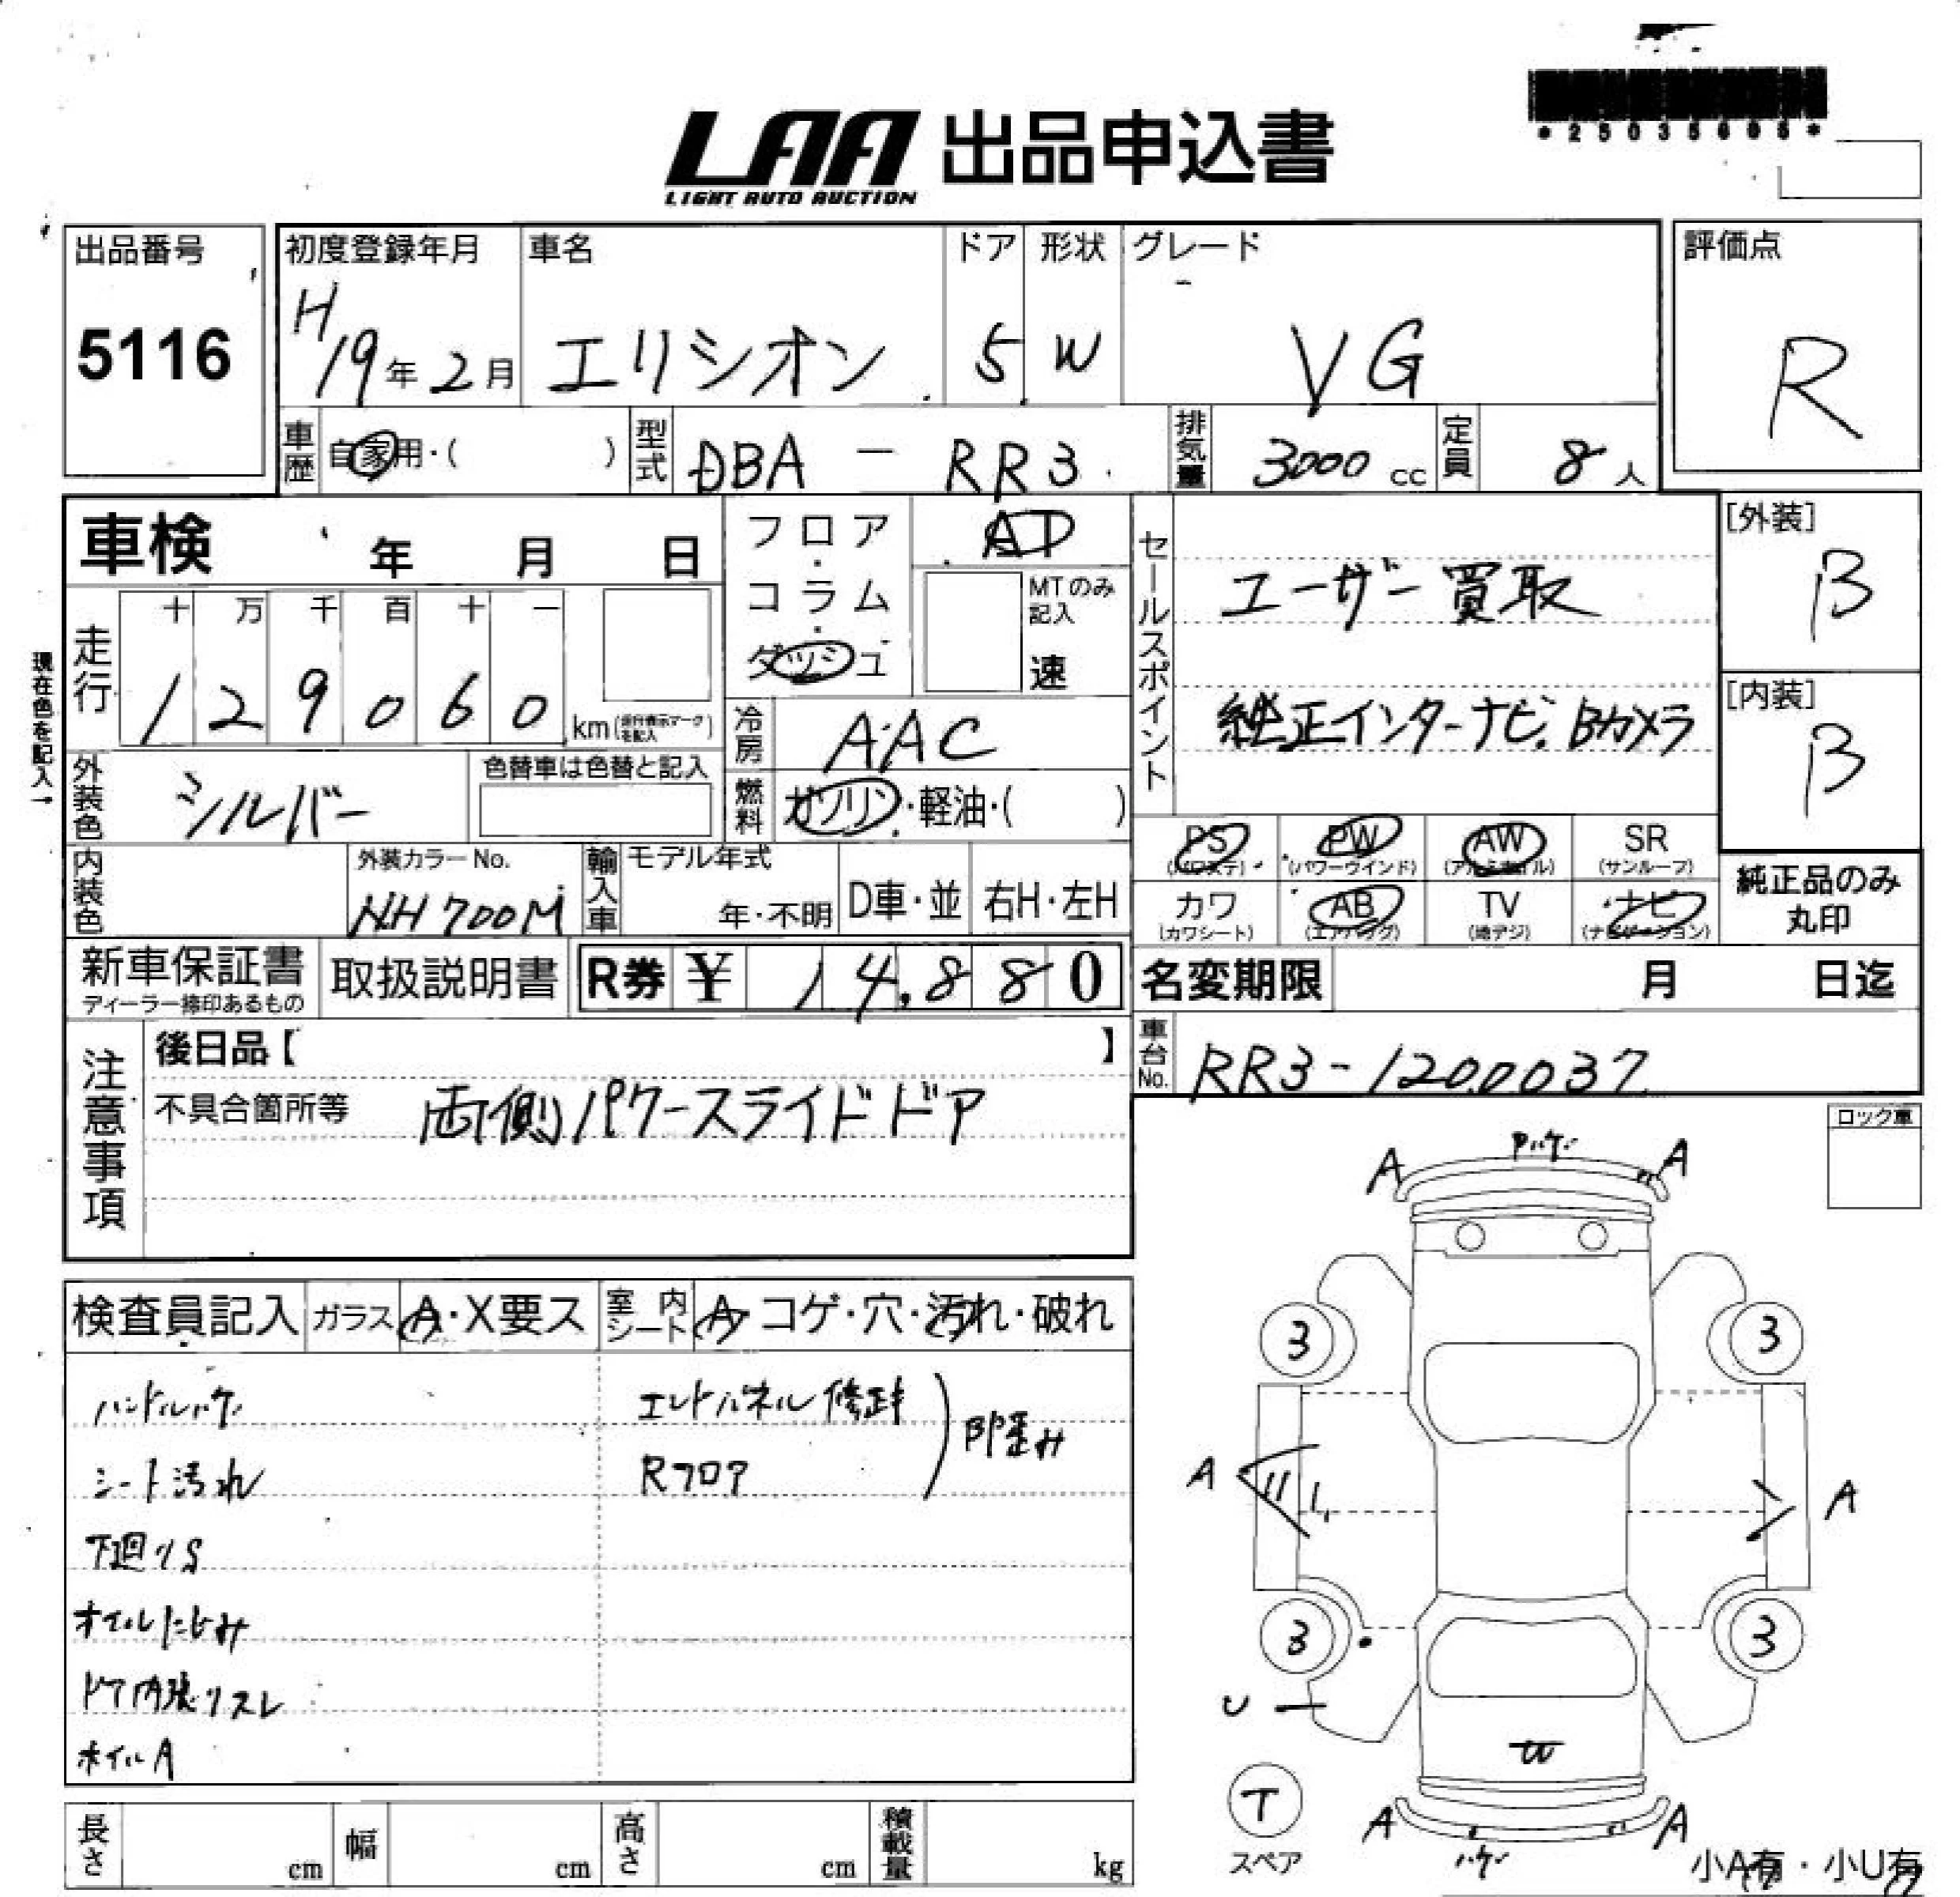 LAA 出品申込書
LIGHT AUTO AUCTION
*25035605*
出品番号
5116
初度登録年月
H19年2月
車名
エリシオン
ドア
5
形状
W
グレード
VG
評価点
R
車歴 自家用・( )
型式 DBA - RR3
排気量 3000 cc
定員 8人
車検 年 月 日
現在色を記入→
走行
十 万 千 百 十 一
1 2 9 0 6 0 km(走行表示マークを記入)
フロア・コラム・ダッシュ
AT
MTのみ記入
速
冷房 AAC
燃料 ガソリン・軽油・( )
セールスポイント
ユーザー買取
純正インターナビ.Bカメラ
[外装]
B
[内装]
B
外装色 シルバー
色替車は色替と記入
内装色
外装カラーNo.
NH700M
輸入車
モデル年式
年・不明
D車・並
右H・左H
PS (パワステ)
PW (パワーウインド)
AW (アルミホイル)
SR (サンルーフ)
カワ (カワシート)
AB (エアバッグ)
TV (地デジ)
ナビ (ナビゲーション)
純正品のみ
丸印
新車保証書
ディーラー捺印あるもの
取扱説明書
R券 ¥ 14,880
名変期限 月 日迄
車台No. RR3-1200037
注意事項
後日品【 】
不具合箇所等 両側パワースライドドア
ロック車
検査員記入
ガラス A・X要ス
室内シート A・コゲ・穴・汚れ・破れ
ハンドルハゲ
シート汚れ
下廻りS
オイルにじみ
ドア内張りスレ
ホイルA
エンドパネル修正キ
Rフロア
A
A
3
3
A
A
3
3
U
W
T
スペア
A
A
ハゲ
小A有・小U有
長さ cm
幅 cm
高さ cm
積載量 kg